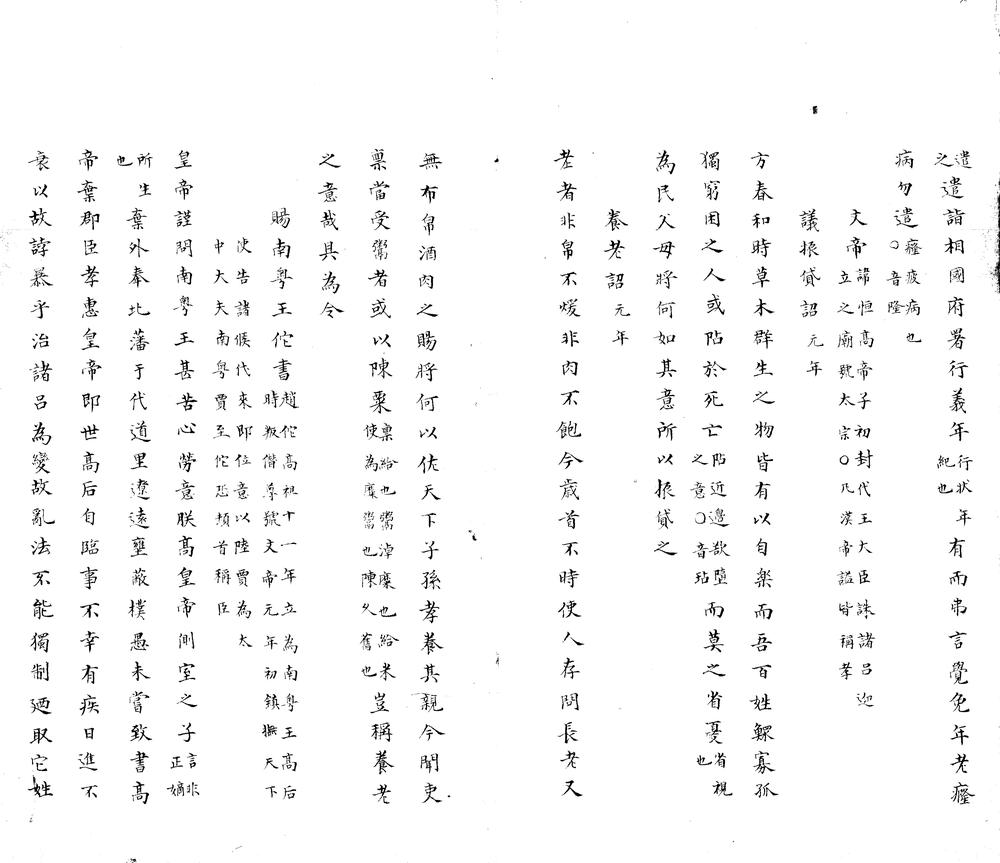 遣之遣詣相國府署行義年行狀年紀也有而弗言覺免年老癃
病勿遣癃疲病也○音隆
文帝諱恒高帝子初封代王大臣誅諸呂迎立之廟號太宗○凡漢帝謚皆稱孝
議振貸詔元年
方春和時草木群生之物皆有以自樂而吾百姓鰥寡孤
獨窮困之人或阽於死亡阽近邊欲墮之意○音玷而莫之省憂省視也
為民父母將何如其意所以振貸之
養老詔元年
老者非帛不煖非肉不飽今歲首不時使人存問長老又
無布帛酒肉之賜將何以佐天下子孫孝養其親今聞吏
稟當受鬻者或以陳粟稟給也鬻淖糜也給米使為糜鬻也陳久舊也豈稱養老
之意哉具為令
賜南粵王佗書趙佗高祖十一年立為南粵王高后時叛僭尊號文帝元年初鎮撫天下
使告諸侯代來即位意以陸賈為太中大夫南粵賈至佗恐頓首稱臣
皇帝謹問南粵王甚苦心勞意朕高皇帝側室之子言非正嫡
所生也棄外奉北藩于代道里遼遠壅蔽樸愚未嘗致書高
帝棄郡臣孝惠皇帝即世高后自臨事不幸有疾日進不
衰以故誖暴乎治諸呂為變故亂法不能獨制廼取它姓